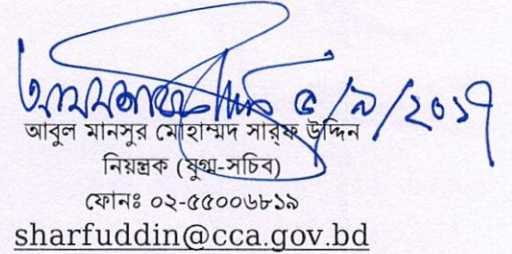 ৫/৯/২০১৭
আবুল মানসুর মোহাম্মদ সার্‌ফ উদ্দিন
নিয়ন্ত্রক (যুগ্ম-সচিব)
ফোনঃ ০২-৫৫০০৬৮১৯
sharfuddin@cca.gov.bd